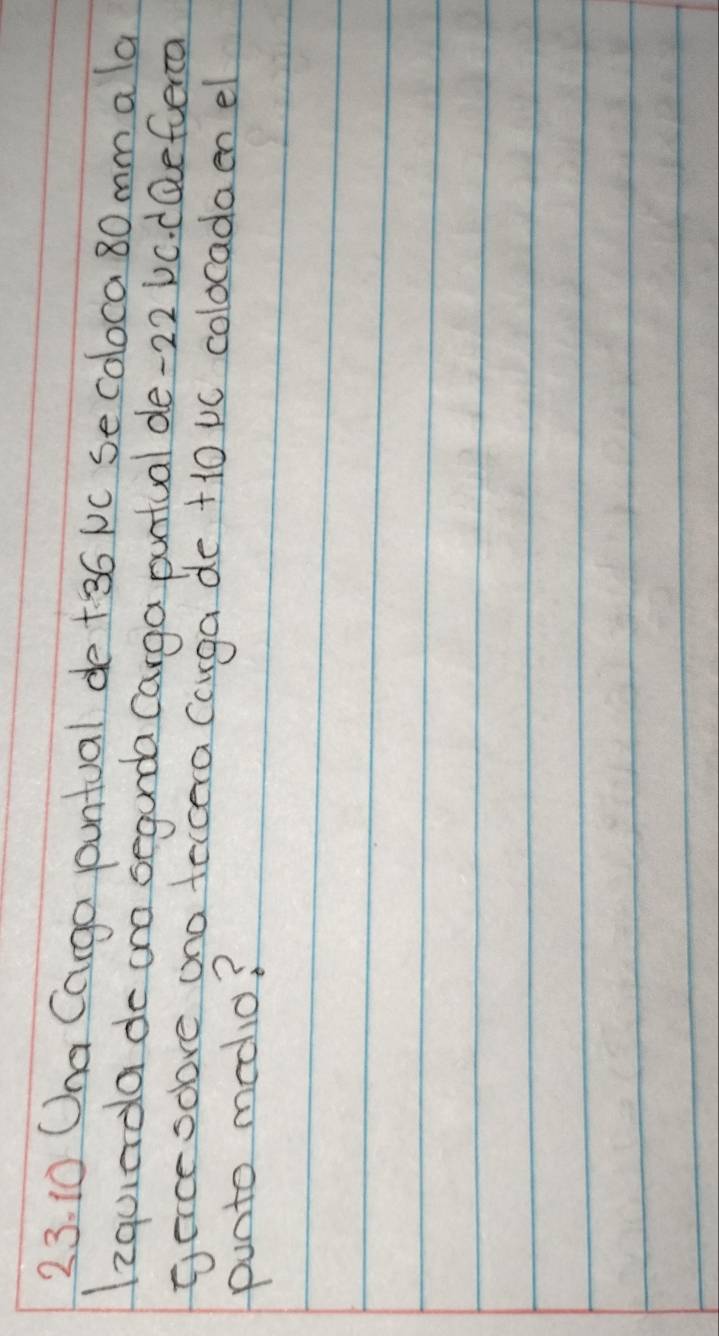 23.10 Una Carga puntual de +36 μC se coloca 80 mm a la
Izquierda de una segunda Carga puntual de -22 μC. ¿Que fuerza
Ejerce sobre una tercera Carga de +10 μC colocada en el
punto medio?